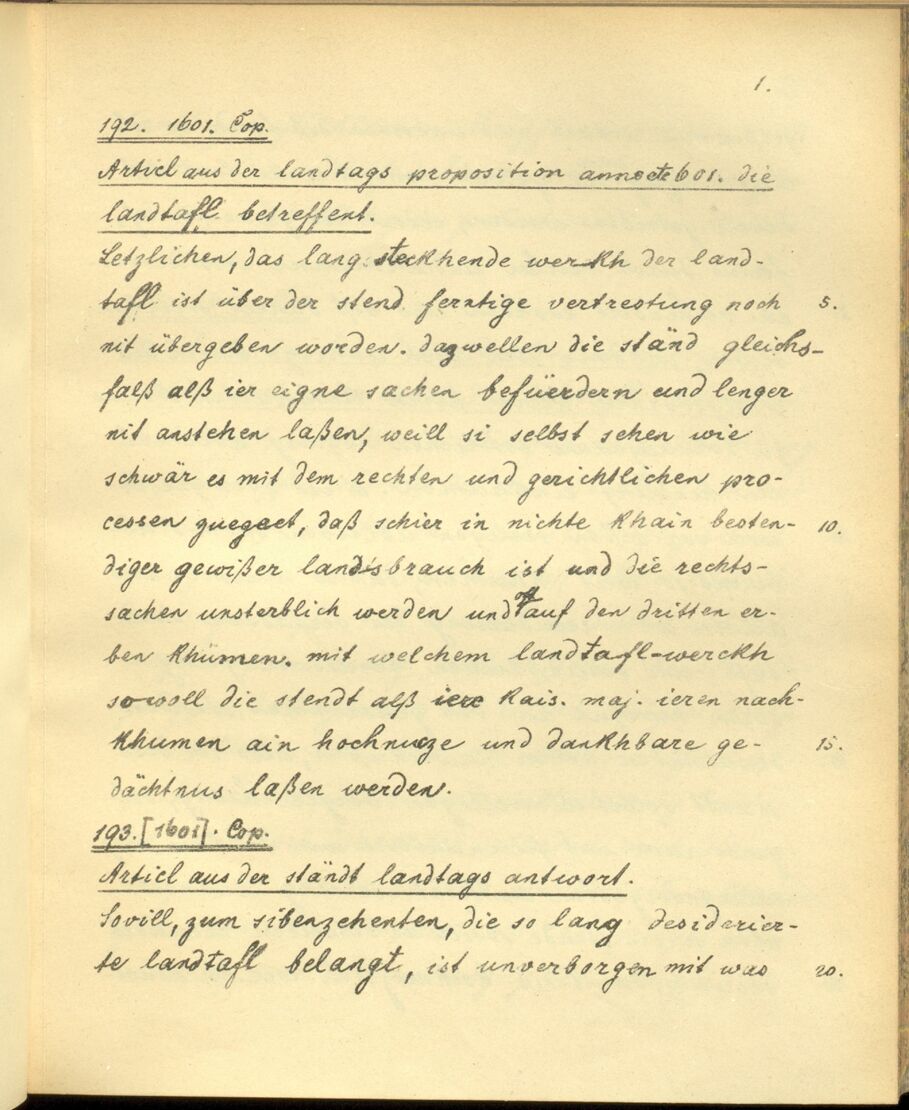 1.
192. 1601. Cop.
Articl aus der landtags proposition anno etc 601. die
landtafl betreffent.
Letzlichen, das lang steckhende werkh der land-
tafl ist über der stend fertige vertrestung noch 5.
nit übergeben worden. dazwellen die ständ gleichs-
falß alß ier eigne sachen befüerdern und lenger
nit anstehen laßen, weill si selbst sehen wie
schwär es mit dem rechten und gerichtlichen pro-
cessen zuegeet, daß schier in nichte khain besten- 10.
diger gewißer landsbrauch ist und die rechts-
sachen unsterblich werden und oft auf den dritten er-
ben khumen. mit welchem landtafl-werckh
sowoll die stendt alß iere Kais. maj. ieren nach-
khumen ain hochnuze und dankhbare ge- 15.
dächtnus laßen werden.
193. [1601]. Cop.
Articl aus der ständt landtags antwort.
Sovill, zum sibenzehenten, die so lang desiderier-
te landtafl belangt, ist unverborgen mit was 20.